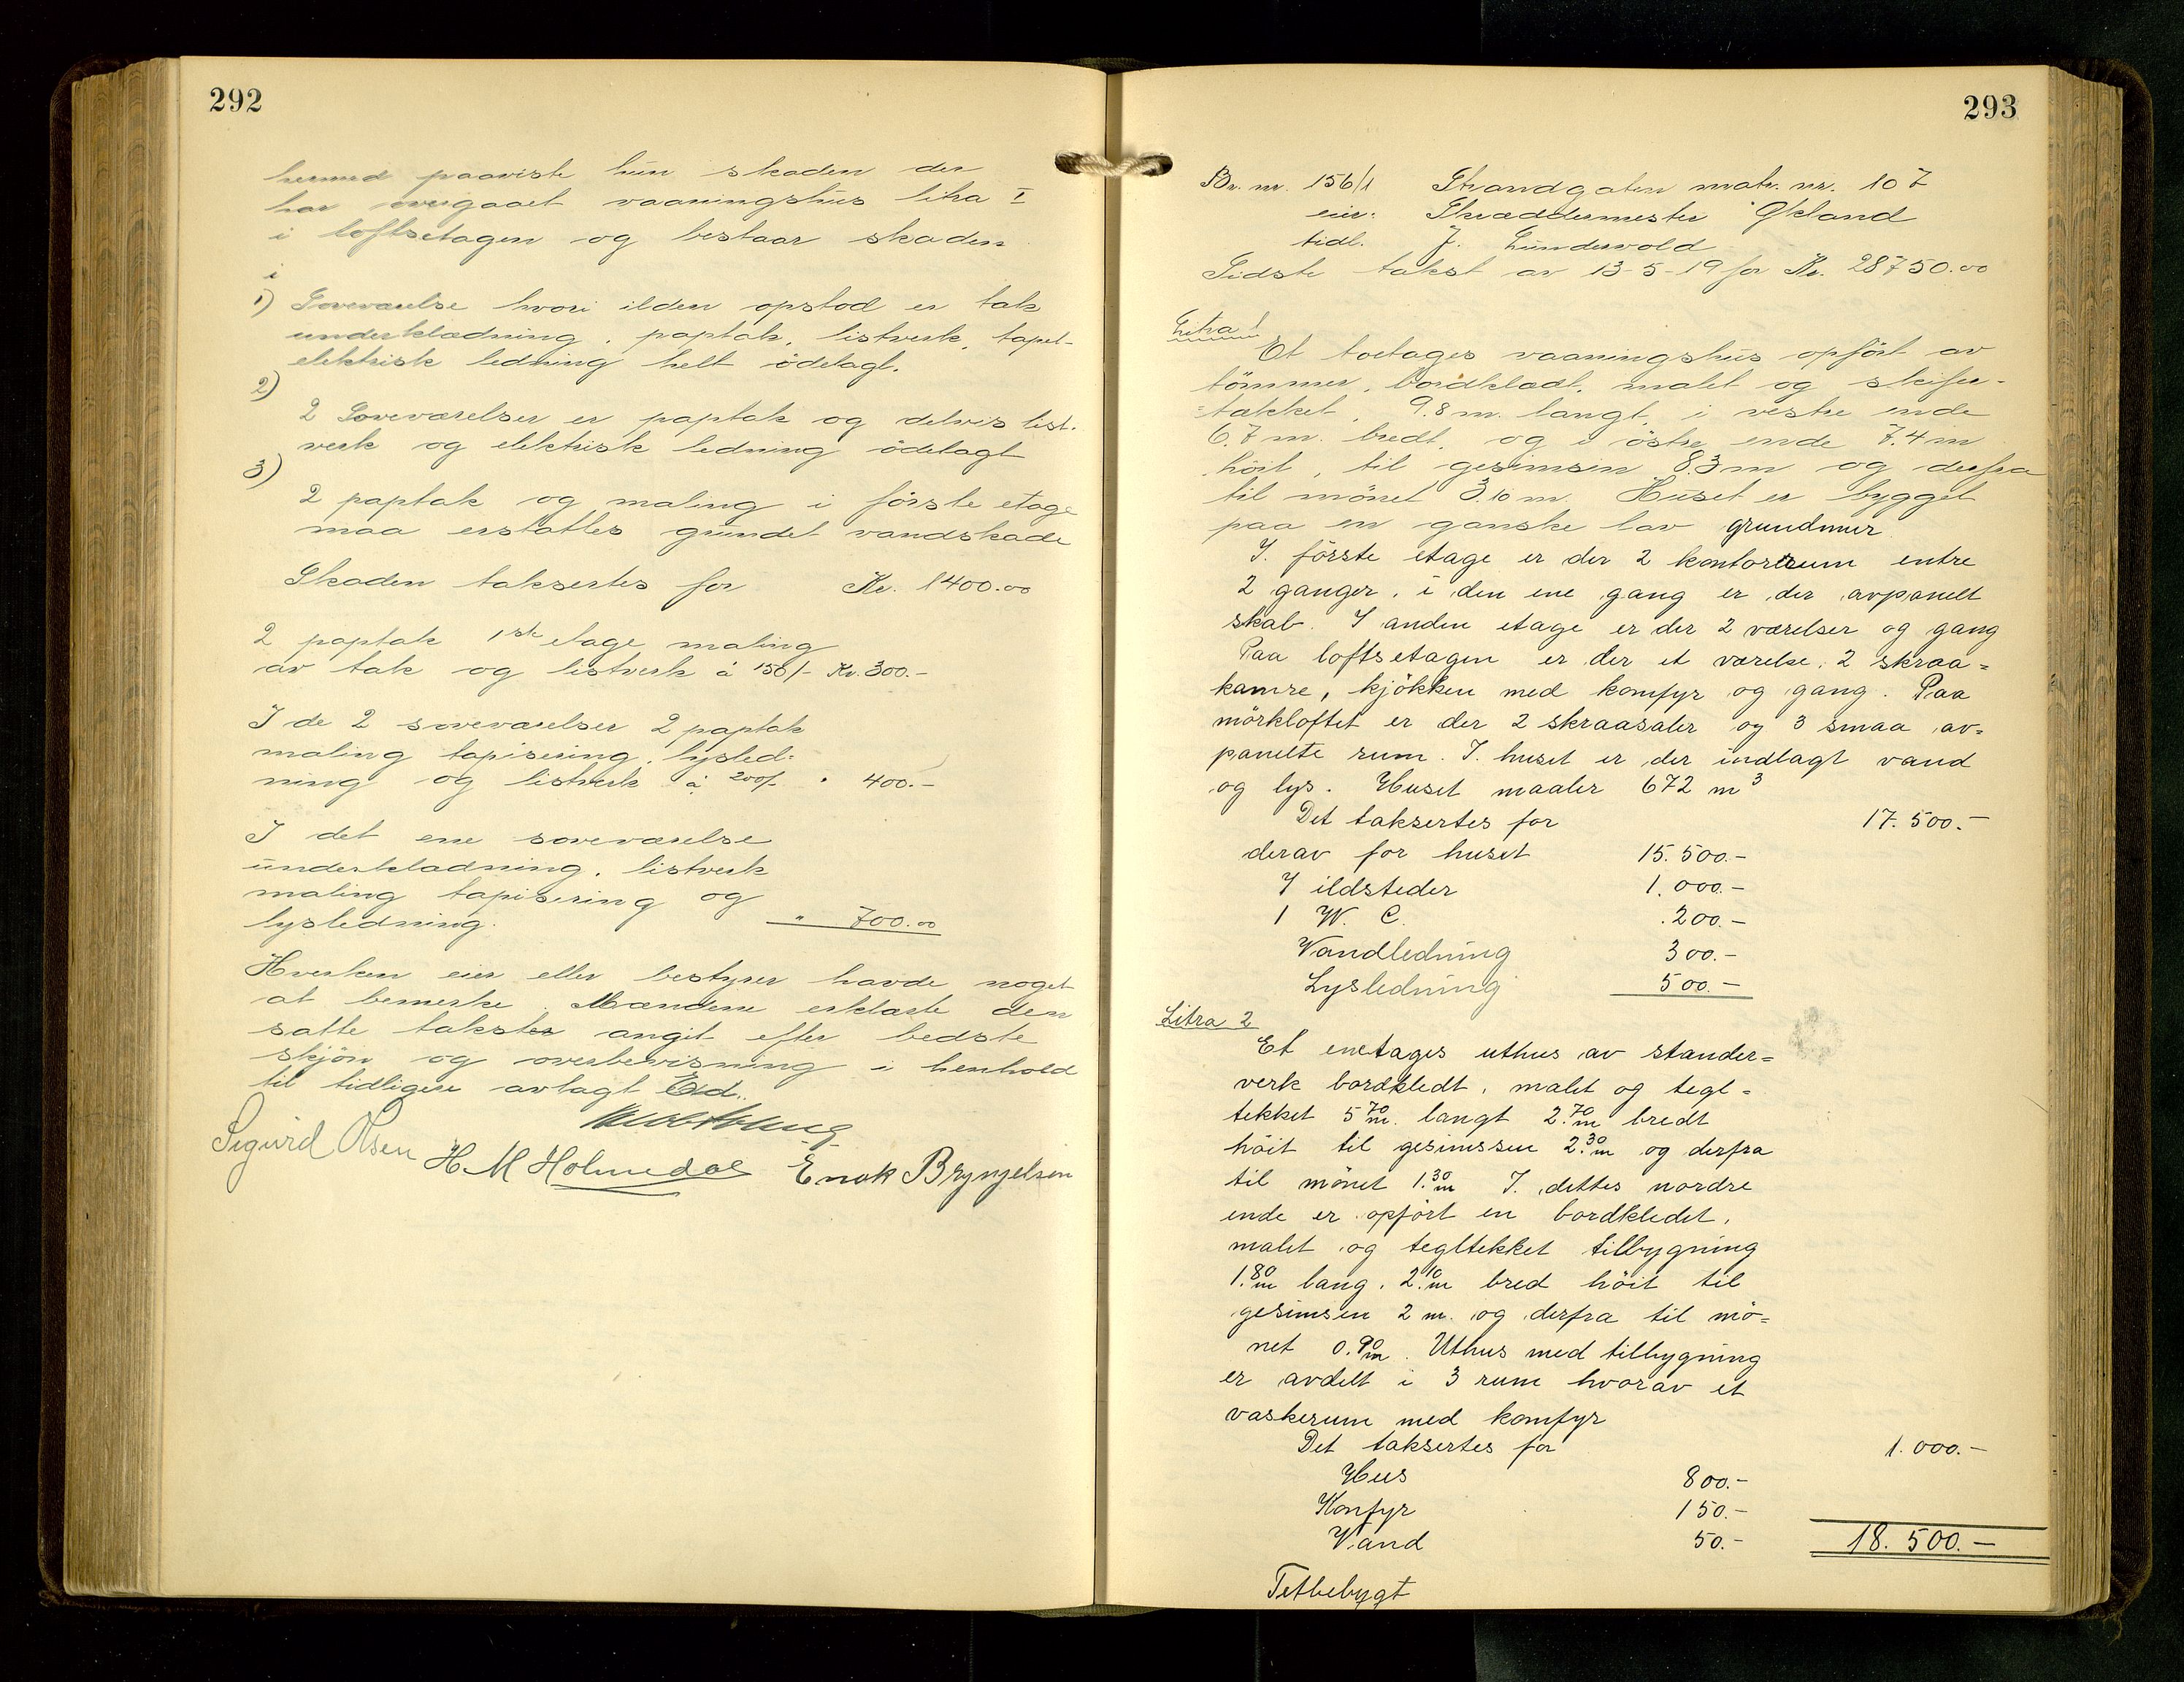 292
hermed paaviste hun skaden der
har overgaaet vaaningshus litra I
i loftsetagen og bestaar skaden
i
1) Soveværelse hvori ilden opstod er tak
underklædning, paptak, listverk, tapet-
elektrisk ledning helt ödelagt.
2)
2 Soveværelser er paptak og delvis list-
verk og elektrisk ledning ödelagt
3)
2 paptak og maling i förste etage
maa erstattes grundet vandskade
Skaden taksertes for Kr. 1400.00
2 paptak 1ste etage maling
av tak og listverk á 150/- Kr. 300.-
I de 2 soveværelser 2 paptak
maling tapisering, lysled-
ning og listverk á 200/- " 400.-
I det ene soveværelse
underklædning, listverk
maling tapisering og
lysledning. " 700.00
Hverken eier eller bestyrer havde noget
at bemerke. Mændene erklærte den
satte takster angit efter bedste
skjön og overbevisning i henhold
til tidligere avlagt Ed.
Sigurd Olsen H M Holmedal Enok Bryngelsen
293
Br. nr. 156/1 Strandgaten matr. nr. 107
eier: Skræddermester Økland
tidl. J. Lundervold
Sidste takst av 13-5-19 for Kr. 28750.00
Litra 1
Et toetages vaaningshus opfört av
tömmer, bordklædt, malet og skifer-
tækket, 9.8 m. langt, i vestre ende
6.7 m. bredt, og i östre ende 7.4 m
höit, til gesimsin 8.3 m og derfra
til mönet 3.10 m. Huset er bygget
paa en ganske lav grundmur.
I. förste etage er der 2 kontorrum entre
2 ganger, i den ene gang er der avpanelt
skab. I anden etage er der 2 værelser og gang
Paa loftsetagen er der et værelse, 2 skraa=
kamre, kjökken med komfyr og gang. Paa
mörkloftet er der 2 skraasaler og 3 smaa av=
panelte rum. I. huset er der indlagt vand
og lys. Huset maaler 672 m3
Det taksertes for 17.500.-
derav for huset 15.500.-
7 ildsteder 1.000.-
1 W. C. 200.-
Vandledning 300.-
Lysledning 500.-
Litra 2
Et enetages uthus av stander=
verk bordkledt, malet og tegl=
tekket 5.70 m. langt 2.70 m bredt
höit til gesimssen 2.30 m og derfra
til mönet 1.30 m I. dettes nordre
ende er opfört en bordkledet,
malet og tegltekket tilbygning
1.80 m lang, 2.10 m bred höit til
gesimsen 2 m. og derfra til mö=
net 0.90 m. Uthus med tilbygning
er avdelt i 3 rum hvorav et
vaskerum med komfyr
Det taksertes for 1.000.-
Hus 800.-
Komfyr 150.-
Vand 50.- 18.500.-
Tetbebygt